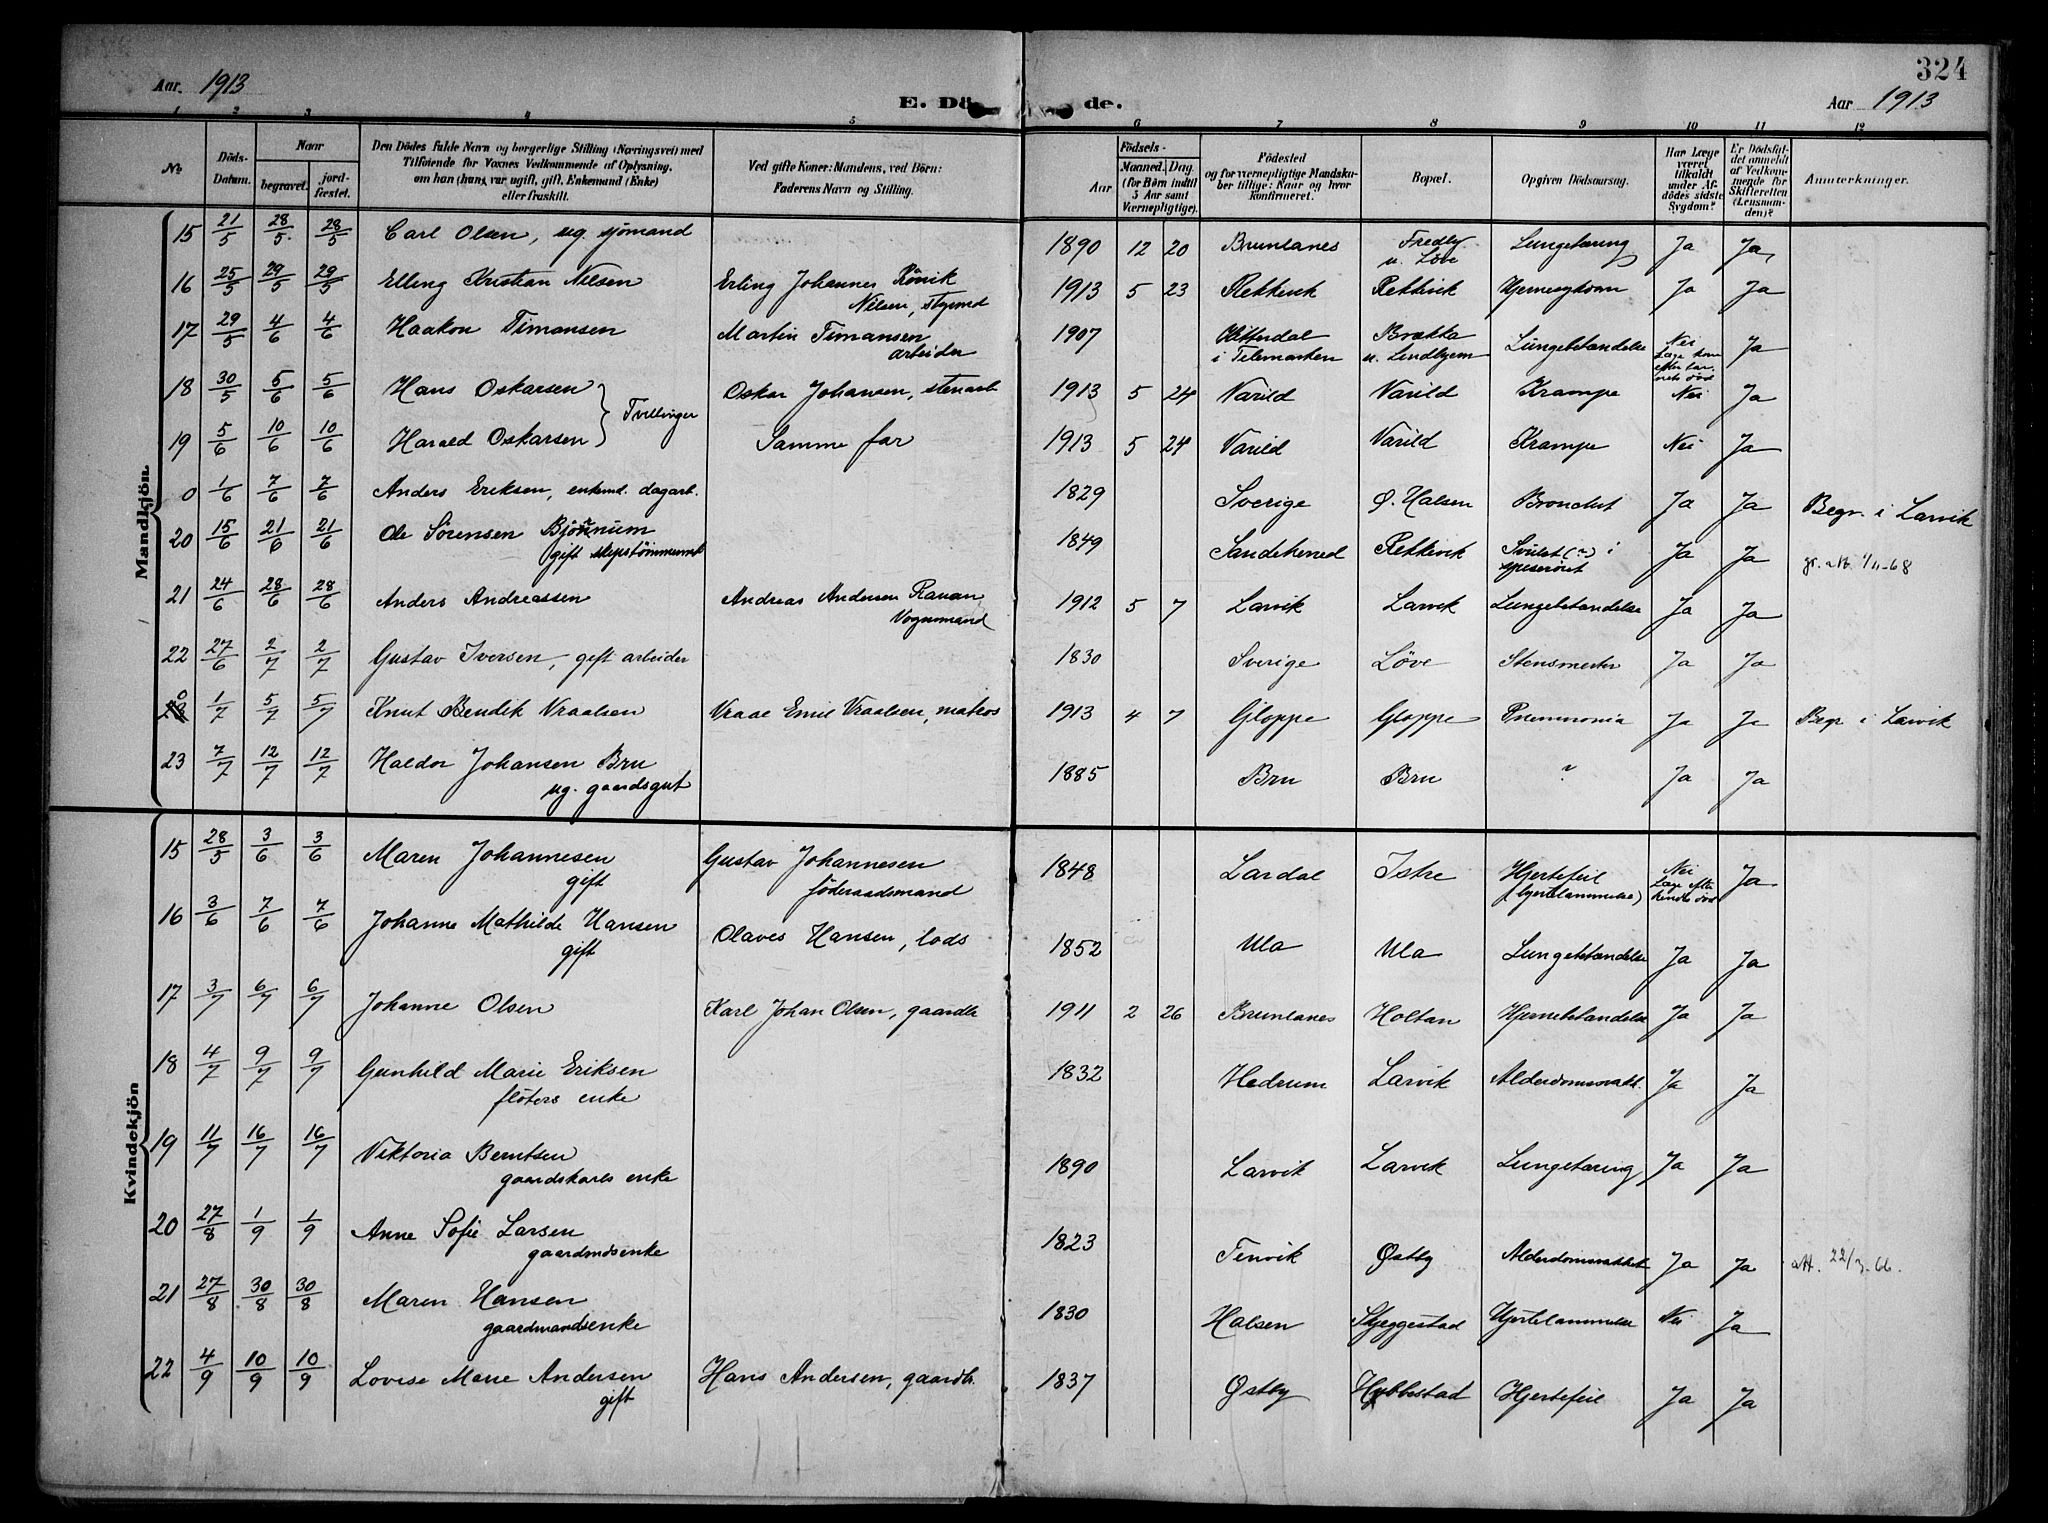 324
Aar 1913
E. Dö de.
Aar 1913
1 2 3 4 5 6 7 8 9 10 11 12
No.
Döds-Datum.
Naar
begravet.
jord-fæstet.
Den Dödes fulde Navn og borgerlige Stilling (Næringsvei) med
Tilföiende for Voxnes Vedkommende af Oplysning,
om han (hun) var ugift, gift, Enkemand (Enke)
eller fraskilt.
Ved gifte Koner: Mandens, ved Börn:
Faderens Navn og Stilling.
Födsels-
Aar
Maaned. Dag.
(for Börn indtil
5 Aar samt
Værnepligtige).
Födested
og for værnepligtige Mandska-
ber tillige: Naar og hvor
konfirmeret.
Bopæl.
Opgiven Dödsaarsag.
Har Læge
været
tilkaldt
under Af-
dödes sidste
Sygdom?
Er Dödsfal-
det anmeldt
af Vedkom-
mende for
Skifteretten
(Lensman-
den)?
Anmærkninger.
Mandkjön
15 21/5 28/5 28/5 Carl Olsen, ug. sjömand 1890 12 20 Brunlanes Fredly u. Löve Lungetæring Ja Ja
16 25/5 29/5 29/5 Elling Kristian Nilsen Erling Johannes Rönvik Nilsen, styrmd 1913 5 23 Rekkevik Rekkevik Hjernesygdom Ja Ja
17 29/5 4/6 4/6 Haakon Timansen Martin Timansen arbeider 1907 Hitterdal i Telemarken Brækka u. Lindhjem Lungebetændelse Nei Læge kom efter barnets död Ja
18 30/5 5/6 5/6 Hans Oskarsen Tvillinger Oskar Johansen, stenarb 1913 5 24 Varild Varild Krampe Nei Ja
19 5/6 10/6 10/6 Harald Oskarsen Samme far 1913 5 24 Varild Varild Krampe Nei Ja
0 1/6 7/6 7/6 Anders Eriksen, enkemd. dagarb. 1829 Sverige Ø. Halsen Bronchit Ja Ja Begr. i Larvik
20 15/6 21/6 21/6 Ole Sörensen Bjönnum gift skipstömmermd 1849 Sandeherred Rekkevik Svulst (~) i spiseröret Ja Ja
21 24/6 28/6 28/6 Anders Andreassen Andreas Andersen Ravan Vognmand 1912 5 7 Larvik Larvik Lungebetændelse Ja Ja
22 27/6 2/7 2/7 Gustav Iversen, gift arbeider 1830 Sverige Löve Stensmerter Ja Ja
0 1/7 5/7 5/7 Knut Bendik Vraalsen Vraal Emil Vraalsen, matros 1913 4 7 Gloppe Gloppe Pneumonia Ja Ja Begr i Larvik
23 7/7 12/7 12/7 Haldor Johansen Bru ug. gaardsgut 1885 Bru Bru ~ Ja Ja
Kvindekjön
15 28/5 3/6 3/6 Maren Johannesen gift Gustav Johannesen föderaadsmand 1848 Lardal Istre Hjertefeil (hjertelammelse) Nei Læge efter hendes död Ja
16 3/6 7/6 7/6 Johanne Mathilde Hansen gift Olaves Hansen, lods 1852 Ula Ula Lungebetændelse Ja Ja
17 3/7 6/7 6/7 Johanne Olsen Karl Johan Olsen, gaardbr 1911 2 26 Brunlanes Holtan Hjernebetændelse Ja Ja
18 4/7 9/7 9/7 Gunhild Marie Eriksen flöters enke 1832 Hedrum Larvik Alderdomssvakh. Ja Ja
19 11/7 16/7 16/7 Viktoria Berntsen gaardskarls enke 1890 Larvik Larvik Lungetæring Ja Ja
20 27/8 1/9 1/9 Anne Sofie Larsen gaardmdsenke 1823 Tenvik Østby Alderdomssvakhet Ja Ja att. 22/3-66.
21 27/8 30/8 30/8 Maren Hansen gaardmandsenke 1830 Halsen Skjeggestad Hjertelammelse Nei Ja
22 4/9 10/9 10/9 Lovise Marie Andersen gift Hans Andersen, gaardbr. 1837 Østby Hybbestad Hjertefeil Ja Ja